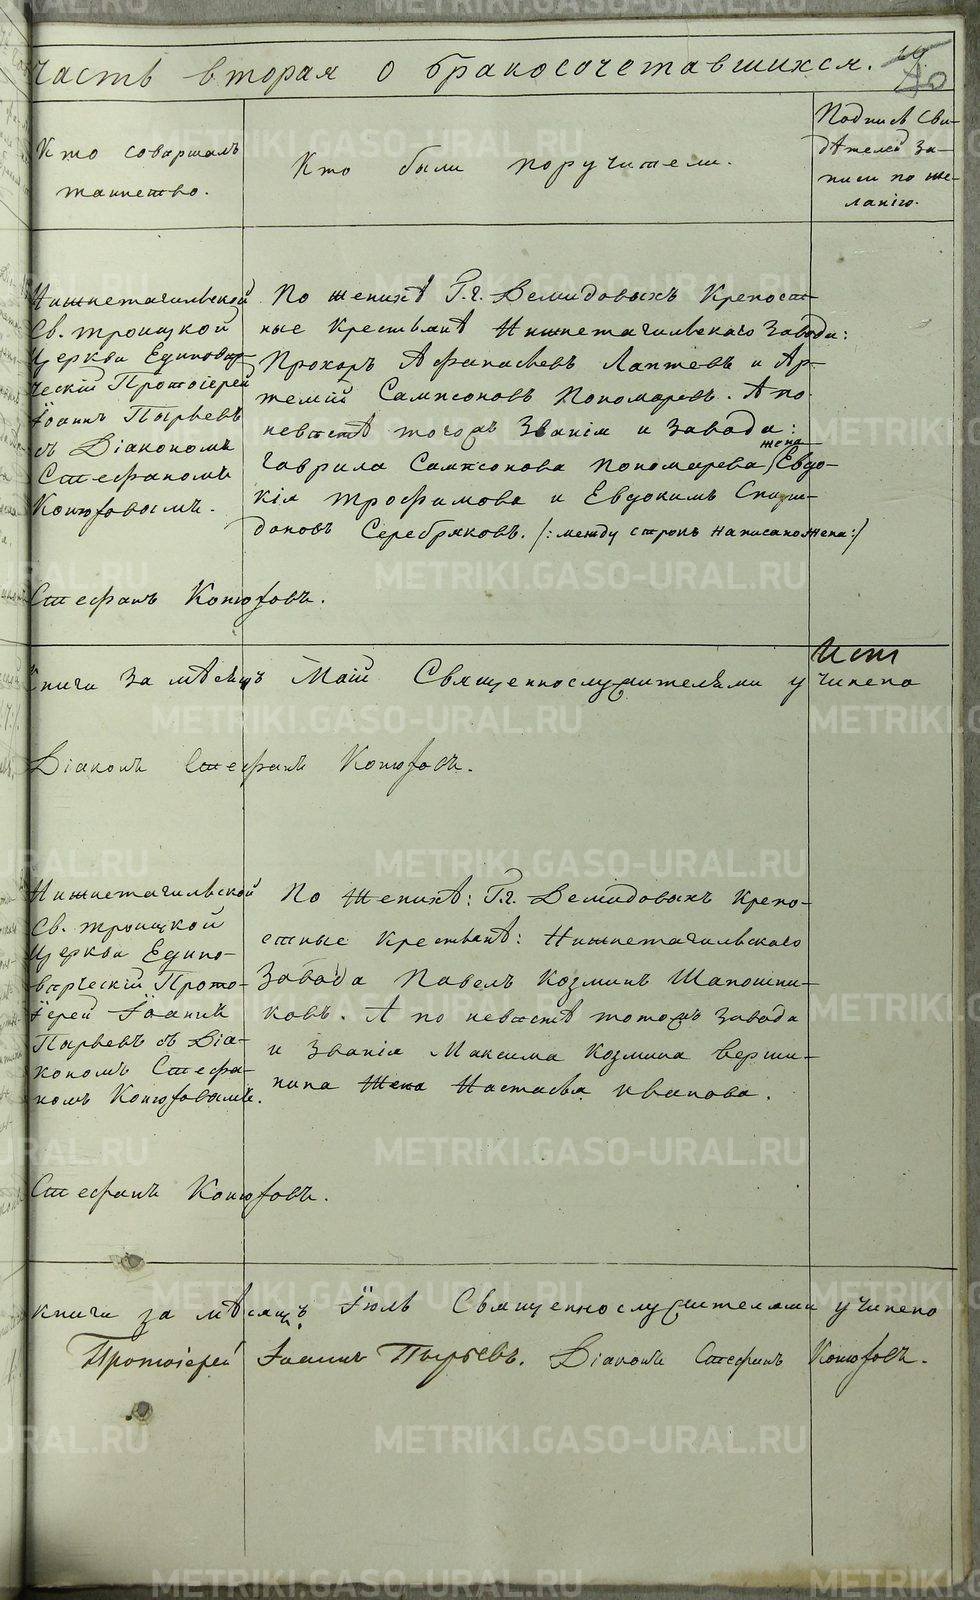 Часть вторая о бракосочетавшихся.
40
Кто совершалъ
таинство.
Кто были поручители.
Подпись сви-
дѣтелей за-
писи по же-
ланію.
Нижнетагильской
Св. Троицкой
Церкви Единовѣр-
ческій Протоіерей
Іоаннъ Пырьевъ
съ Діакономъ
Стефаномъ
Конюховымъ.
По женихѣ Г.г. Демидовыхъ Крепост-
ные Крестьянѣ Нижнетагильскаго завода:
Прохоръ Афанасьевъ Лаптевъ и Ар-
темій Сампсоновъ Пономаревъ. А по
невѣстѣ тогожъ званія и завода:
Гаврила Сампсонова Пономарева жена Евдо-
кія Трофимова и Евдокимъ Спири-
доновъ Серебряковъ. /: между строкъ написано жена:/
Стефанъ Конюховъ.
книги за мѣсяцъ Май Священнослужителями учинено
Діаконъ Стефанъ Конюховъ.
Нижнетагильской
Св. Троицкой
Церкви Едино-
вѣрческій Прото-
іерей Іоаннъ
Пырьевъ съ Діа-
кономъ Стефа-
номъ Конюховымъ.
По Женихѣ: Г.г. Демидовыхъ крепо-
стные крестьянѣ: Нижнетагильскаго
Завода Павелъ Козминъ Шапошни-
ковъ. А по невѣстѣ тогожъ завода
и званія Максима Козмина Верши-
нина Жена Настасья Иванова.
Стефанъ Конюховъ.
книги за мѣсяцъ Іюль Священнослужителями учинено
Протоіерей Іоаннъ Пырьевъ. Діаконъ Стефанъ Конюховъ.
METRIKI.GASO-URAL.RU